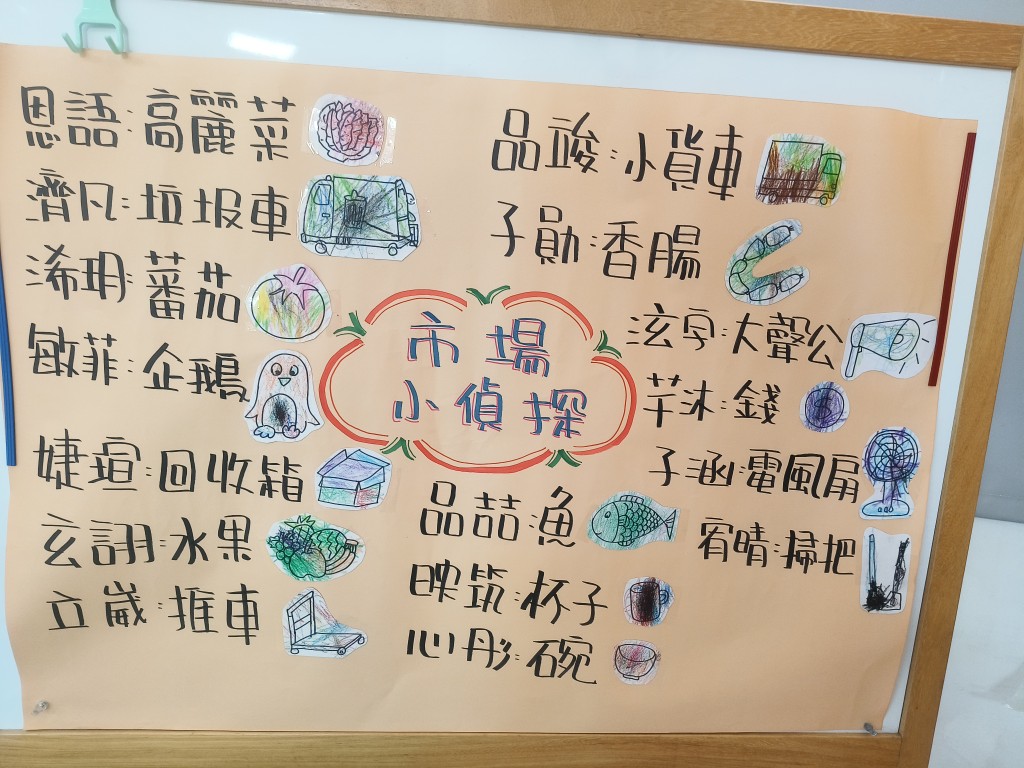 恩語:高麗菜
濟凡:垃圾車
浠玥:蕃茄
敏菲:企鵝
婕瑄:回收箱
玄詡:水果
立崴:推車
市場
小偵探
品喆:魚
映筑:杯子
心彤:碗
品竣:小貨車
子勛:香腸
泫字:大聲公
芊沐:錢
子涵:電風扇
宥晴:掃把